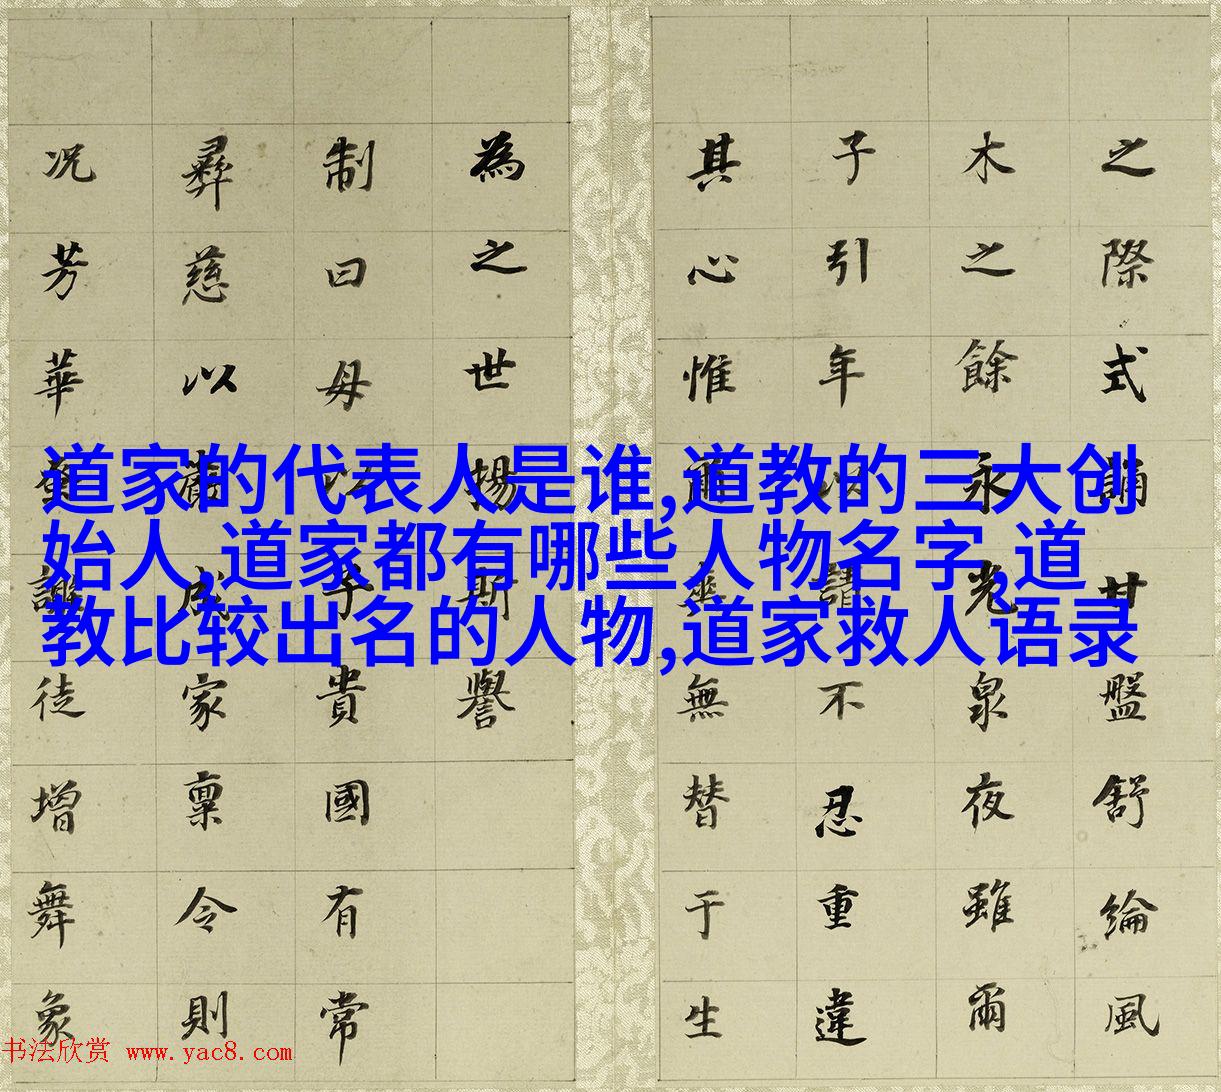 之際式誦甘盤舒綸風
木之餘永光泉夜雖爾
子引年以請不忍重違
其心惟爾無替于生
為之世揚斯譽
制曰母以子貴國有常
彝慈以成家稟令則
况芳華徒增舞象
道家的代表人是谁,道教的三大创
始人,道家都有哪些人物名字,道
教比较出名的人物,道家救人语录
书法欣赏 www.yac8.com